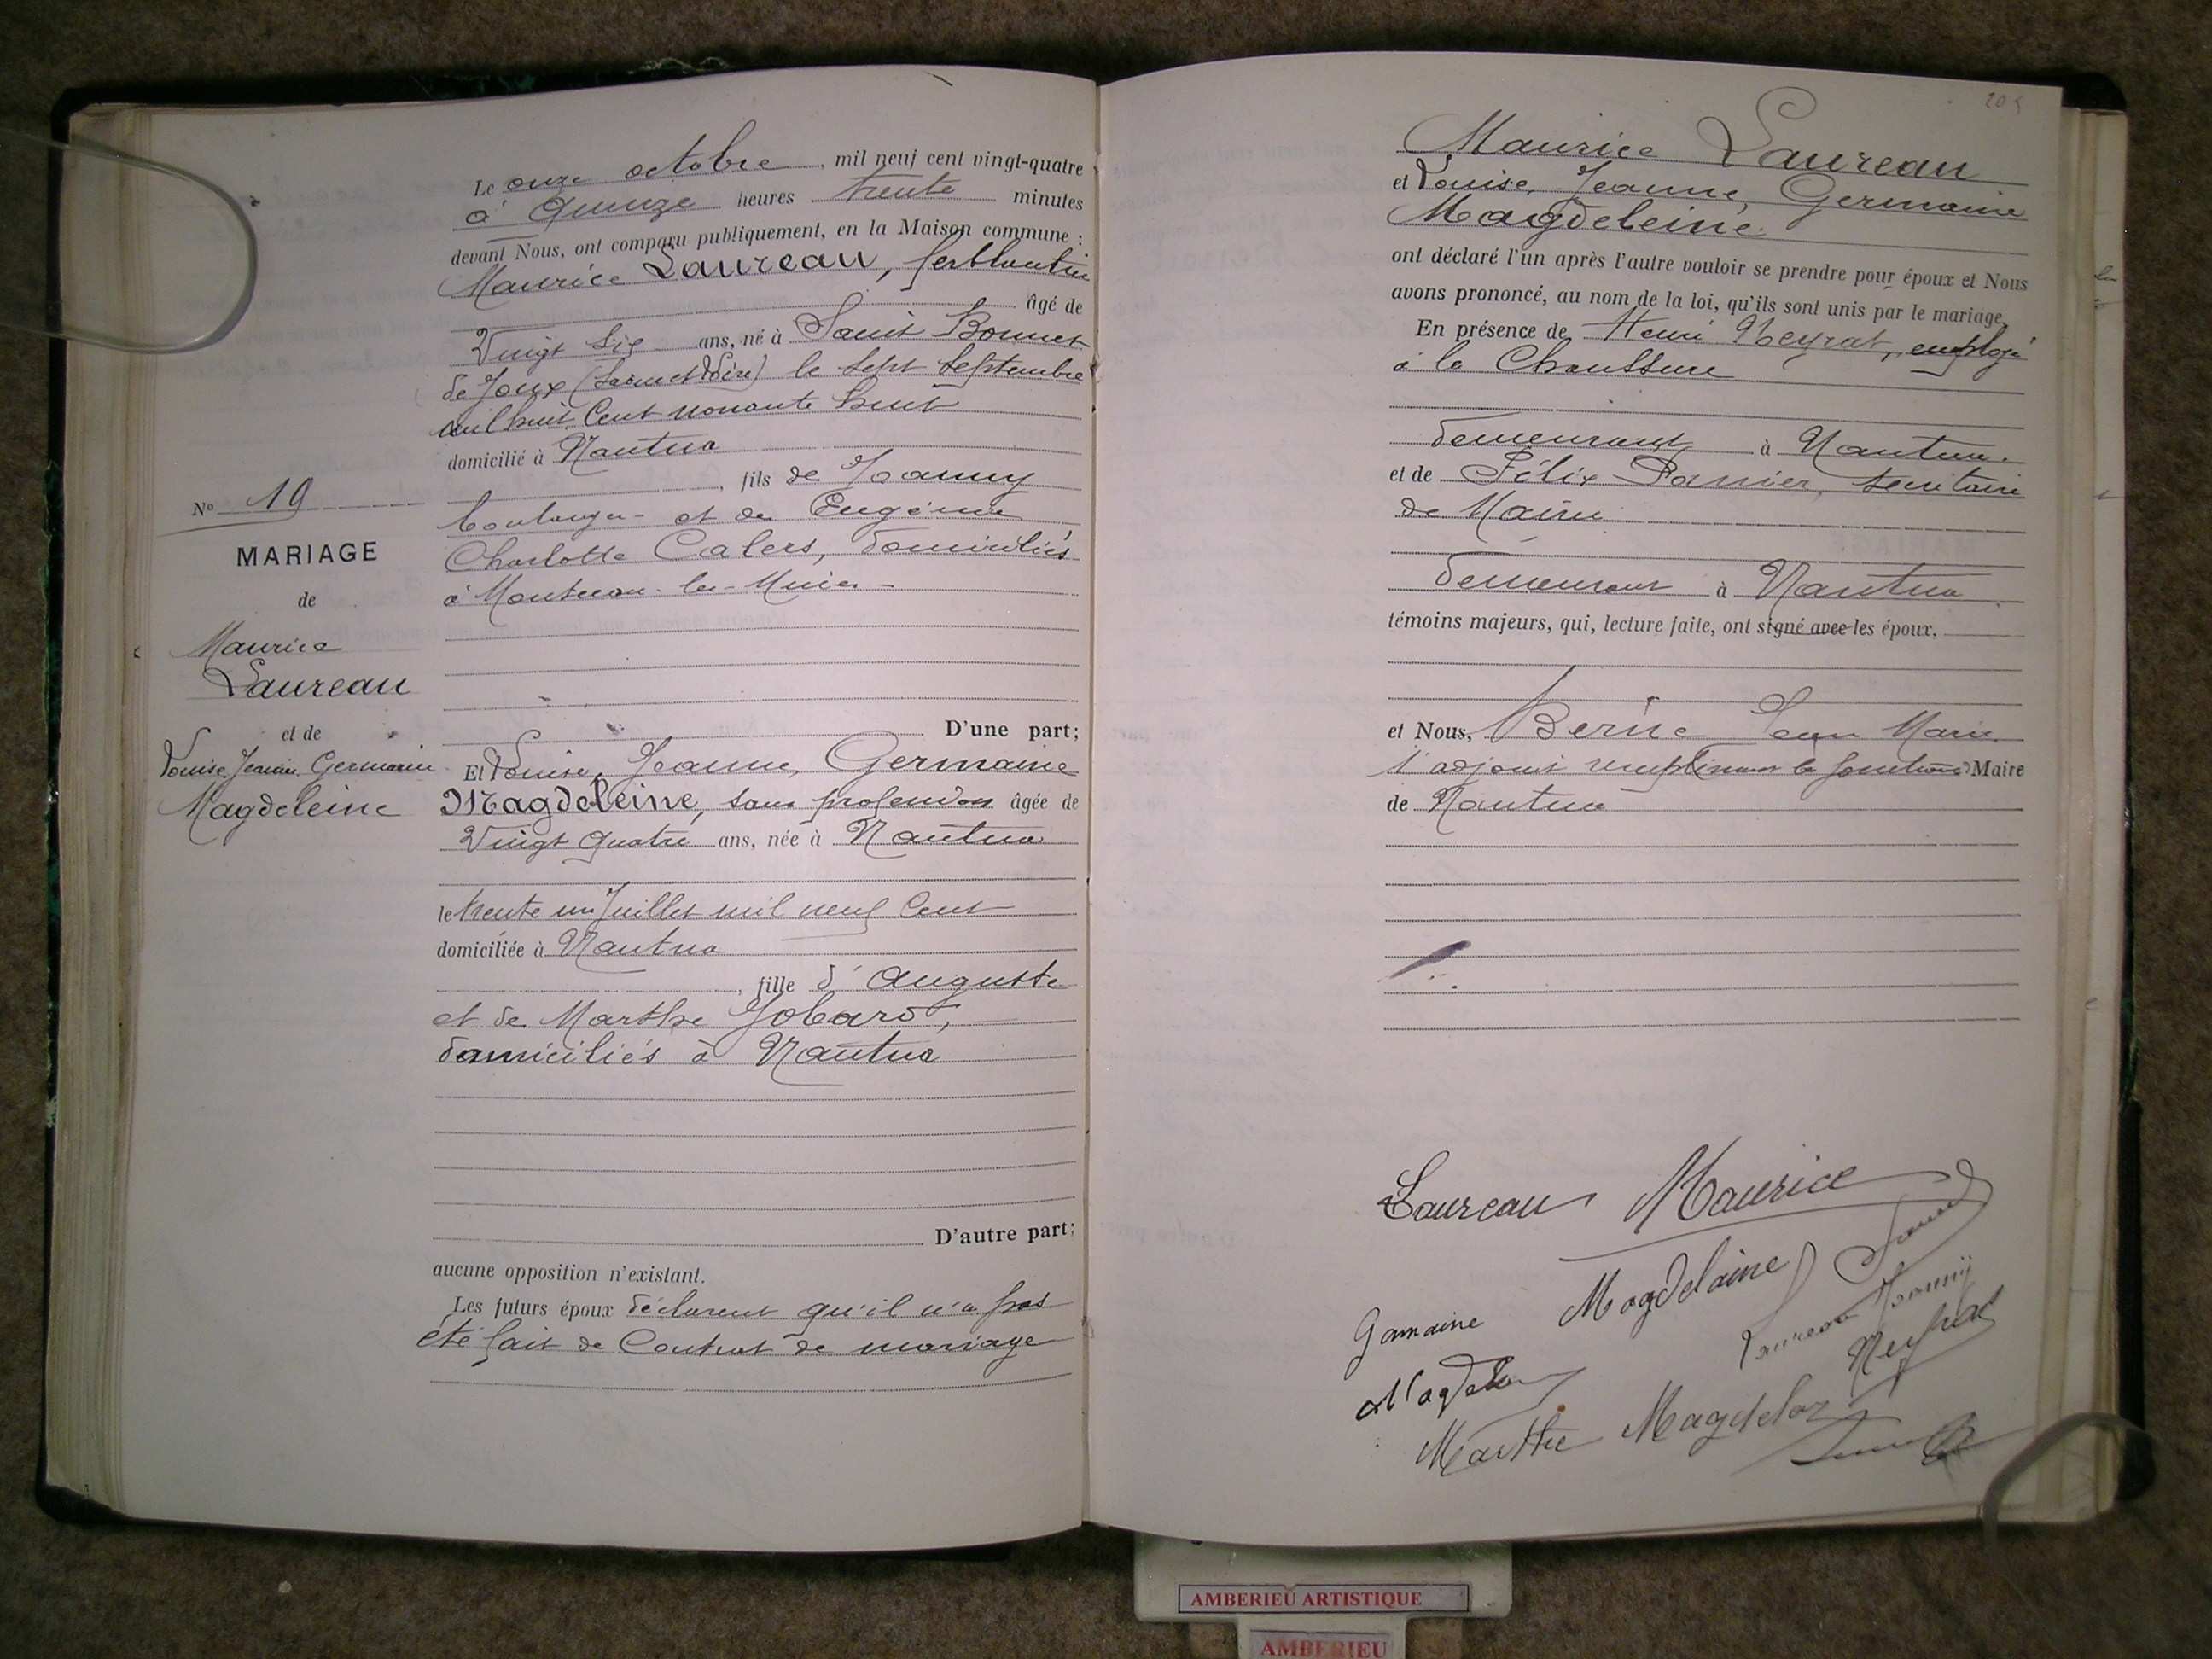 Le onze octobre, mil neuf cent vingt-quatre
à Quinze heures trente minutes
devant Nous, ont comparu publiquement, en la Maison commune :
Maurice Laureau, ferblantier
âgé de
Vingt six ans, né à Saint Bonnet
de Joux (Saone et Loire) le sept septembre
mil huit cent nonante huit
domicilié à Nantua
, fils de Joanny
boulanger et de Eugénie
Charlotte Calers, domiciliés
à Montceau-les-Mines
No 19
MARIAGE
de
Maurice
Laureau
et de
Louise Jeanne Germaine
Magdeleine
D'une part;
Et Louise, Jeanne, Germaine
Magdeleine, sans profession âgée de
Vingt quatre ans, née à Nantua
le trente un Juillet mil neuf cent
domiciliée à Nantua
, fille d'Auguste
et de Marthe Jobard,
domiciliés à Nantua
D'autre part;
aucune opposition n'existant.
Les futurs époux déclarent qu'il n'a pas
été fait de Contrat de mariage
Maurice Laureau
et Louise, Jeanne, Germaine
Magdeleine
ont déclaré l'un après l'autre vouloir se prendre pour époux et Nous
avons prononcé, au nom de la loi, qu'ils sont unis par le mariage.
En présence de Henri Neyrat, employé
à la Chaussure
demeurant à Nantua.
et de Félix Panier, secrétaire
de Mairie
demeurant à Nantua
témoins majeurs, qui, lecture faite, ont signé avec les époux.
et Nous, Berne Jean Marie
l'adjoint remplissant les fonctions Maire
de Nantua
Laureau Maurice
Germaine Magdelaine
Laureau Joanny
Neyrat
Marthe
AMBERIEU ARTISTIQUE
AMBERIEU